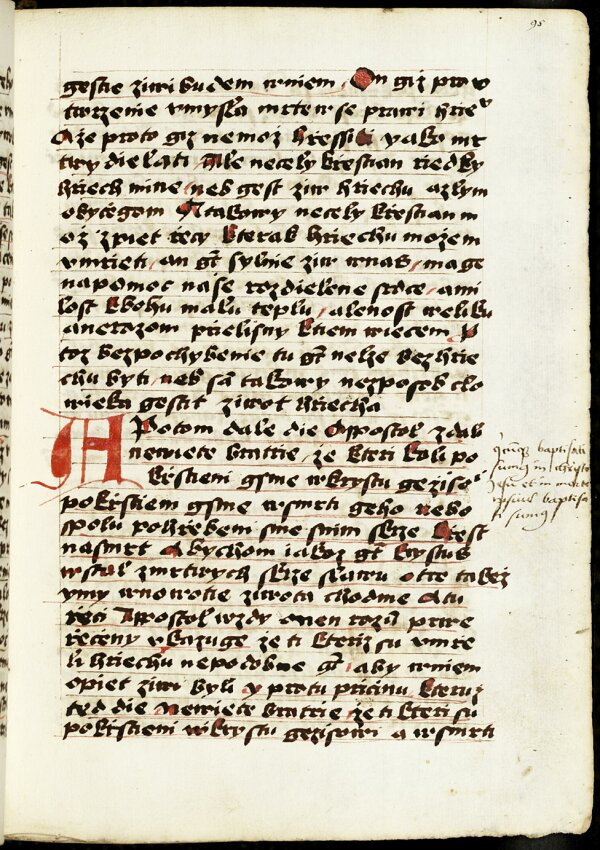 95
gestie ziwi budem wniem On giz pro v
twrzenie vmysla mrtew se prawi hriev
A ze proto giz nemoz hressiti yako mr
twy dielati Ale necely krestian riedky
hriech mine neb gest ziw hriechu a zlym
obyczegom A takowy necely krestian m
oz zpiet recy kterak hriechu mozem
vmrieti an gt sylnie ziw wnas mage
napomoc nase rozdielene srdce a mi
lost kbohu malu teplu a lenost weliku
a nerozom prielisny ktiem wiecem P
toz bezpochybenie tu gt nelze bez hrie
chu byti neb sa takowy nezposob clo
wieka gestit ziwot hriecha
A Potom dale die Appostol zdali
newiete bratrie ze kteri koli po
krstieni gsme wkrystu gezisoi
pokrstieni gsme wsmrti geho nebo
spolu pohrbeni sme snim skrze krest
nasmrt Abychom iakoz gt krystus
wstal zmrtwych skrze slawu otce takez
y my wnowotie ziwota chodme A tu
reci Appostol wzdy onen rozu prwe
receny vkazuge ze ti kteriz su vmre
li hriechu nepodobne gt aby wniem
opiet ziwi byli y protu pricinu kteruz
ted die Newiete bratrie ze ti kteri su
pokrstieni wkrystu gezisowi a wsmrti
baptisati
sumus in christo
ihesu et in morte
ipsius baptisa
ti sumus